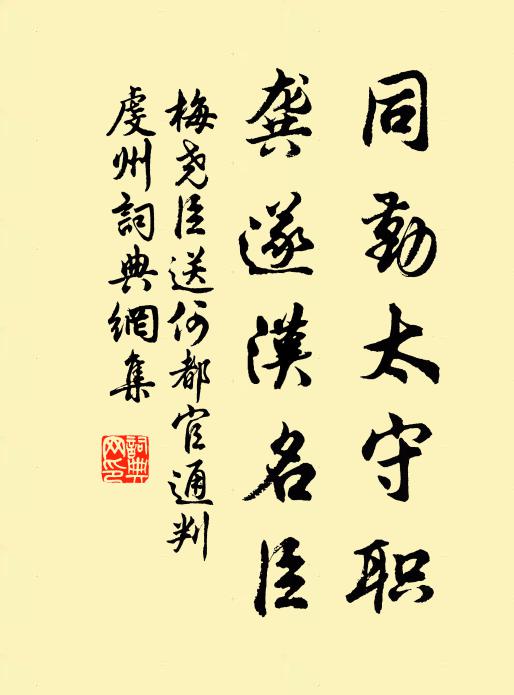 同勤太守职
龚遂汉名臣
梅尧臣送何都官通判
虔州詞典網集
詞典网印